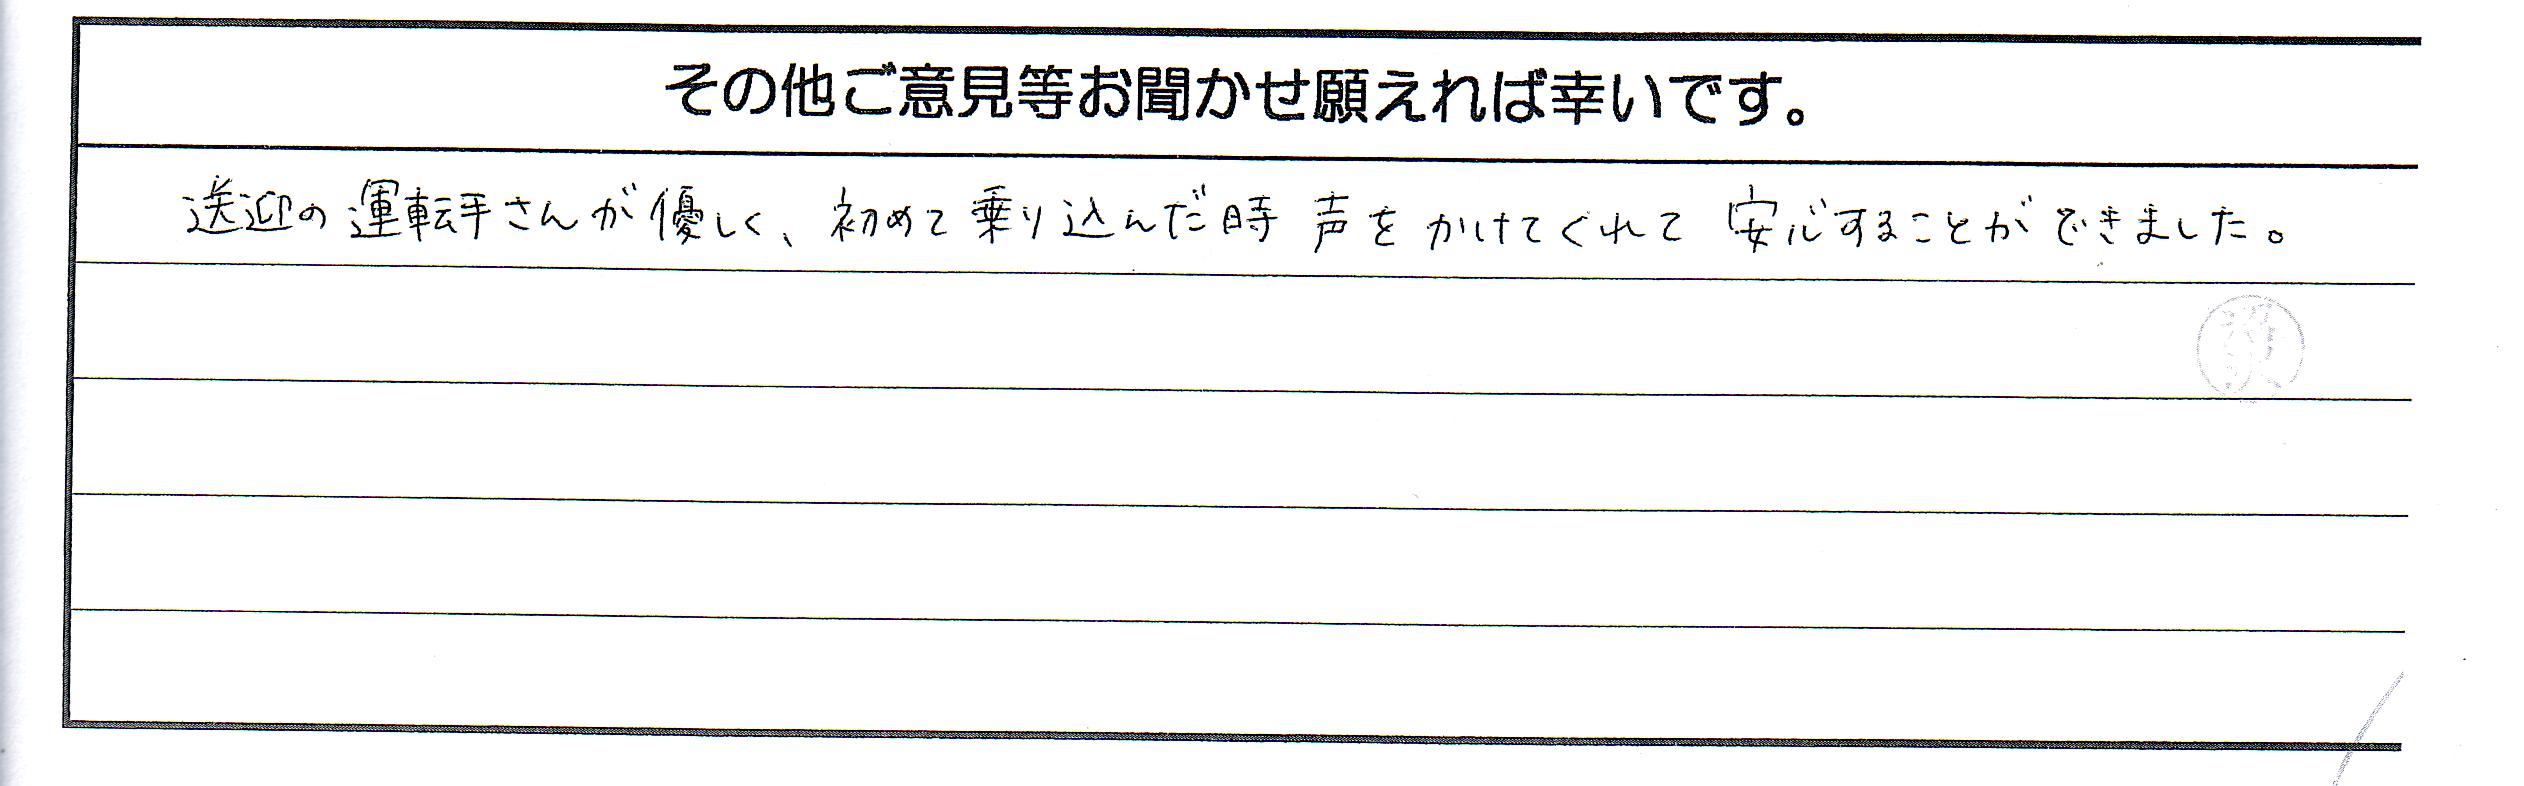 その他ご意見等お聞かせ願えれば幸いです。
送迎の運転手さんが優しく、初めて乗り込んだ時 声をかけてくれて 安心することができました。